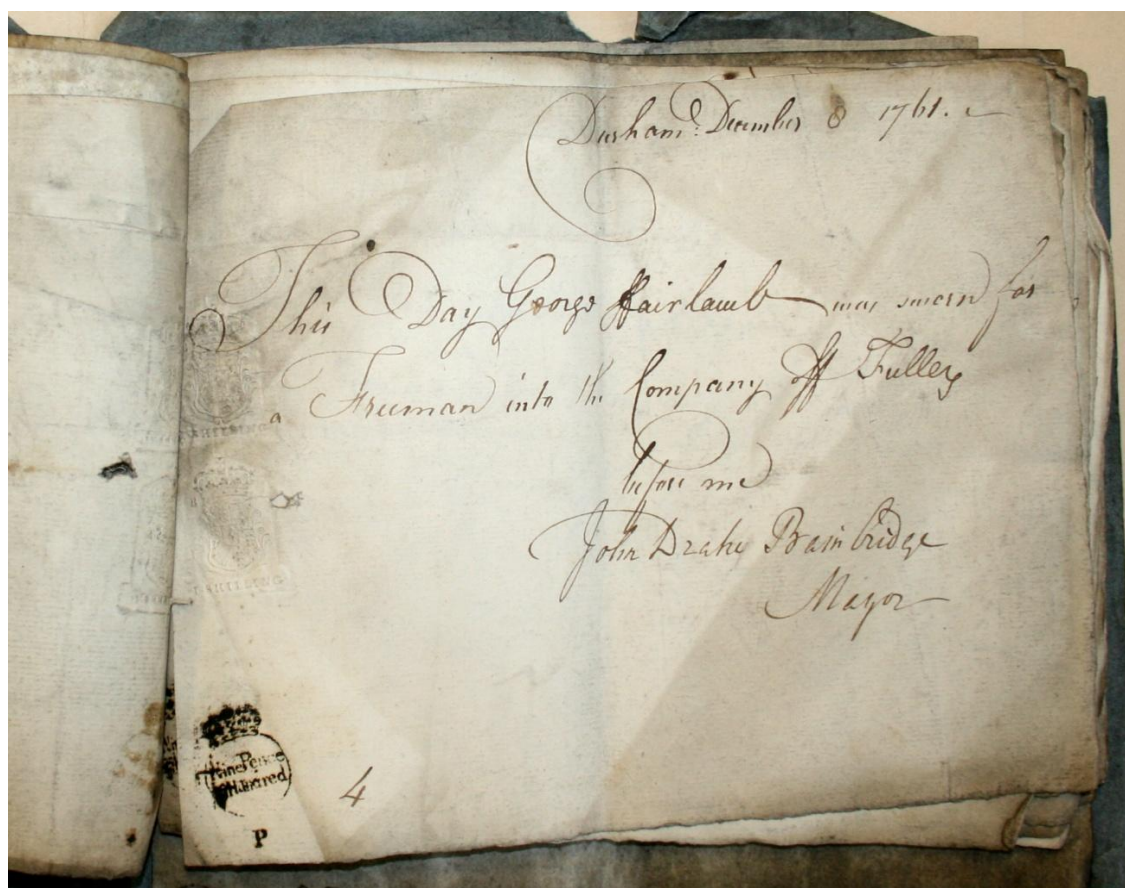 Durham: December 8 1761.
This Day George ffairlamb was sworn for
a Freeman into the Company off Fullers
before me
John Drake Bainbridge
Mayor
SHILLING
Nine Pence
Hundred
P
4